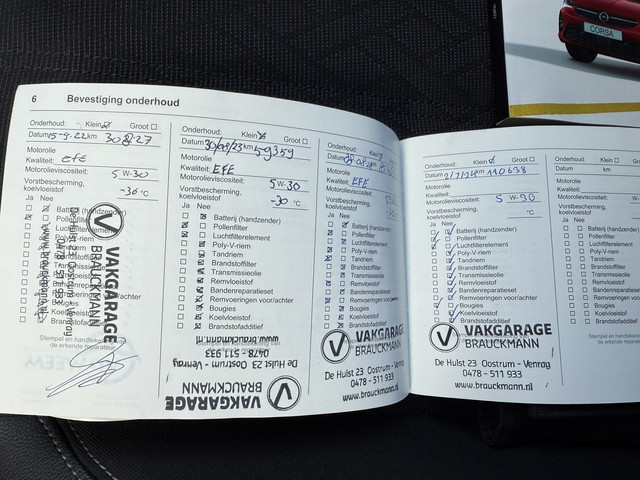 CORSA
6 Bevestiging onderhoud
Onderhoud: Klein Groot
Datum 15-9-22 km
Motorolie
Kwaliteit: EFE
Motorolieviscositeit: 5W-30
Vorstbescherming,
koelvloeistof -30 °C
Ja Nee
Batterij (handzender)
Pollenfilter
VAKGARAGE
BRAUCKMANN
De Hulst 23 Oostrum - Venray
0478 - 511 933
www.brauckmann.nl
Stempel en handtekening
de erkende reparateur
Onderhoud: Klein Groot
Datum 30/08/23 km 59359
Motorolie
Kwaliteit: EFE
Motorolieviscositeit: 5W-30
Vorstbescherming,
koelvloeistof -30 °C
Ja Nee
Batterij (handzender)
Pollenfilter
Luchtfilterelement
Poly-V-riem
Tandriem
Brandstoffilter
Transmissieolie
Remvloeistof
Bandenreparatieset
Remvoeringen voor/achter
Bougies
Koelvloeistof
Brandstofadditief
www.brauckmann.nl
0478 - 511 933
De Hulst 23 Oostrum - Venray
BRAUCKMANN
VAKGARAGE
Onderhoud: Klein Groot
Datum
Motorolie
Kwaliteit: EFE
Motorolieviscositeit:
Vorstbescherming,
koelvloeistof
Ja Nee
Batterij (handzender)
Pollenfilter
Luchtfilterelement
Poly-V-riem
Tandriem
Brandstoffilter
Transmissieolie
Remvloeistof
Bandenreparatieset
Remvoeringen voor/achter
Bougies
Koelvloeistof
Brandstofadditief
VAKGARAGE
BRAUCKMANN
De Hulst 23 Oostrum - Venray
0478 - 511 933
www.brauckmann.nl
Onderhoud: Klein Groot
Datum km
Motorolie
Kwaliteit:
Motorolieviscositeit: 5 W-30
Vorstbescherming,
koelvloeistof °C
Ja Nee
Batterij (handzender)
Pollenfilter
Luchtfilterelement
Poly-V-riem
Tandriem
Brandstoffilter
Transmissieolie
Remvloeistof
Bandenreparatieset
Remvoeringen voor/achter
Bougies
Koelvloeistof
Brandstofadditief
VAKGARAGE
BRAUCKMANN
De Hulst 23 Oostrum - Venray
0478 - 511 933
www.brauckmann.nl
Onderhoud: Klein Groot
Datum km
Motorolie
Kwaliteit:
Motorolieviscositeit:
Vorstbescherming,
koelvloeistof
Ja Nee
Batterij (handzender)
Pollenfilter
Luchtfilterelement
Poly-V-riem
Tandriem
Brandstoffilter
Transmissieolie
Remvloeistof
Bandenreparatieset
Remvoeringen voor/achter
Bougies
Koelvloeistof
Brandstofadditief